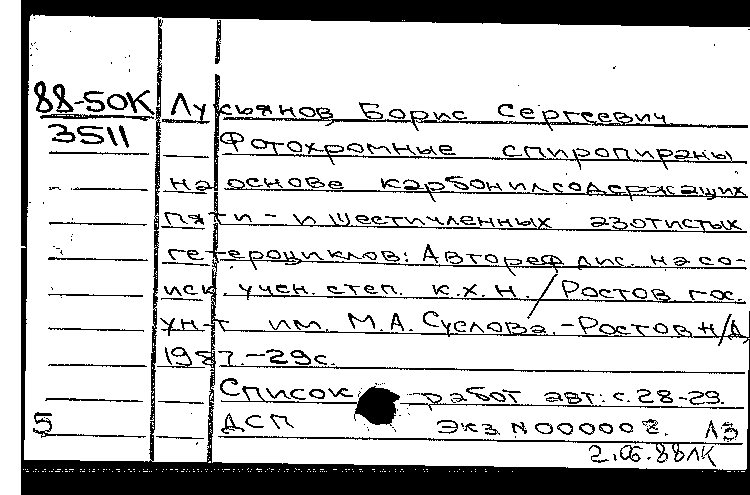 88-50К Лукьянов Борис Сергеевич
3511 Фотохромные спиропираны
на основе карбонилсодержащих
пяти - и шестичленных азотистых
гетероциклов: Автореф дис. на со-
иск. учен. степ. к.х.н. / Ростов. гос.
ун-т им. М.А. Суслова. - Ростов н/Д,
1987. - 29с.
Список работ авт: с. 28-29.
5 ДСП Экз N000002. ЛЗ
2.06.88ЛК